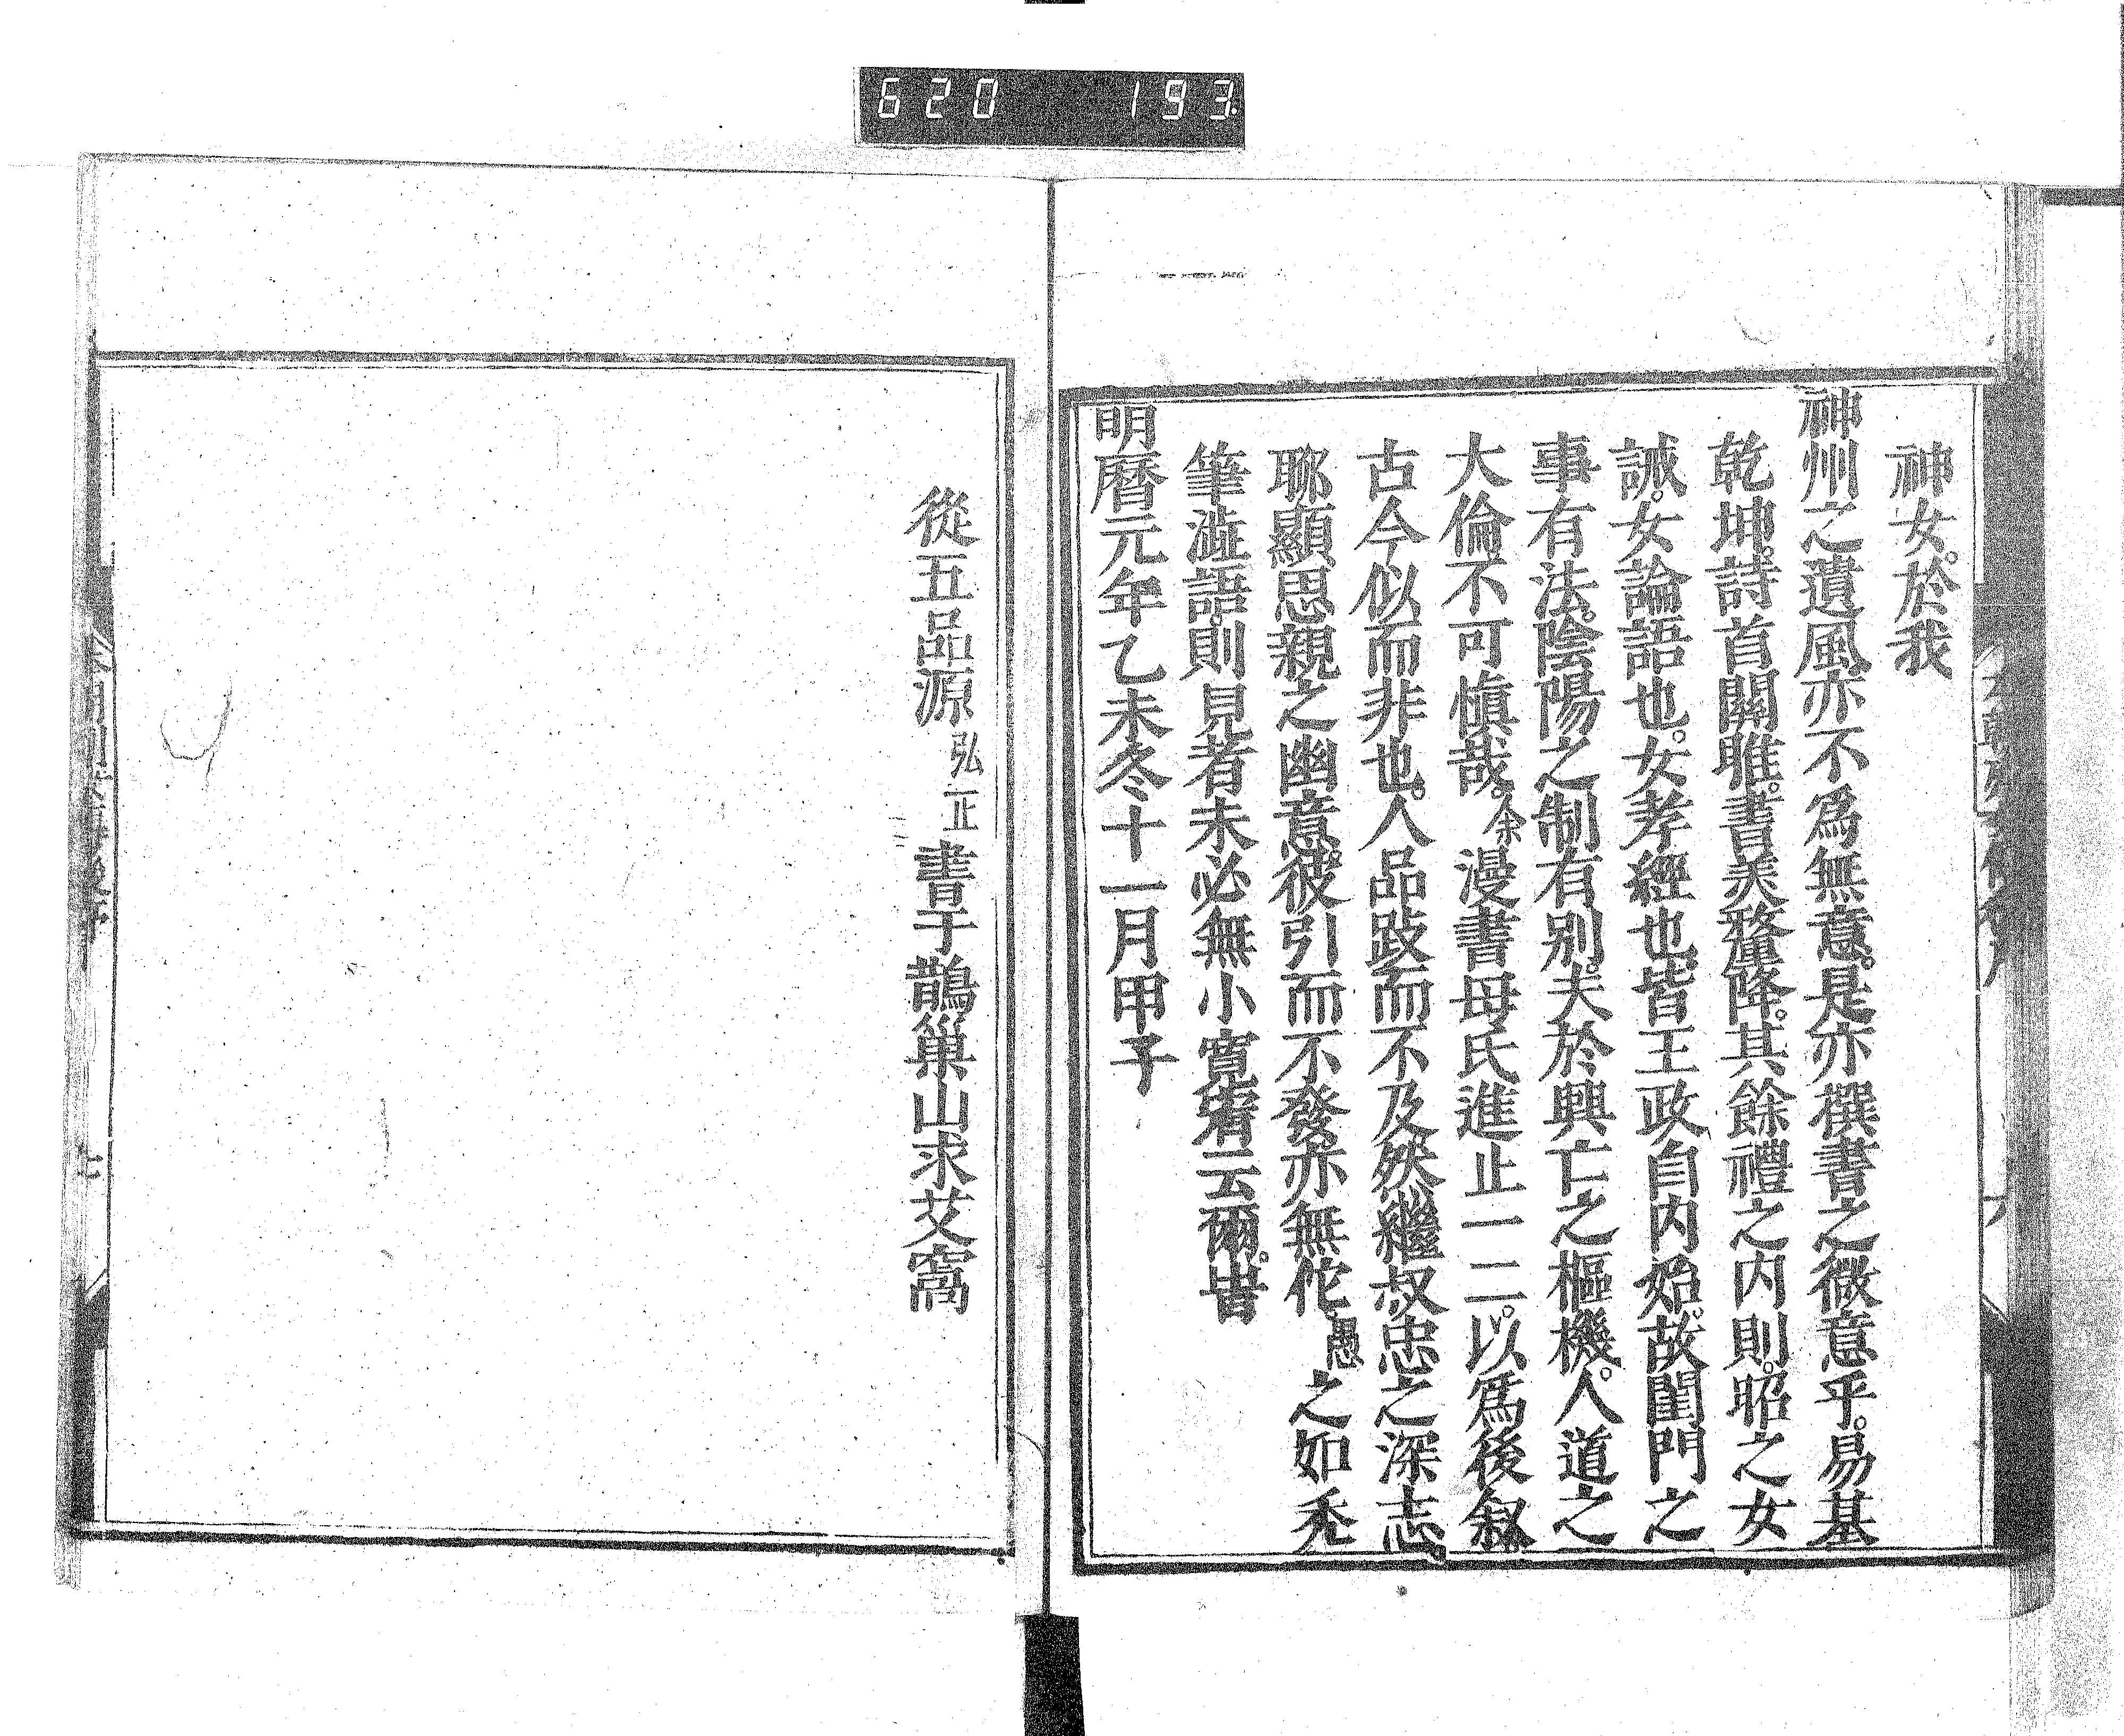 620 193
神女。於我
神州之遺風。亦不爲無意。是亦撰書之微意乎。易基
乾坤。詩首關雎。書美釐降。其餘禮之内則。昭之女
誡。女論語也。女孝經也。皆王政自内始。故閨門之
事有法。陰陽之制有别。夫於興亡之樞機。人道之
大倫。不可愼哉。余漫書母氏進止一二。以爲後叙。
古今似而非也。人品跂而不及。然繼叔忠之深志。
聊顯思親之幽意。彼引而不發。亦無佗。愚之如禿
筆澁語。則見者未必無小寛宥云爾。旹
明曆元年乙未冬十一月甲子
從五品源弘正書于鵲巢山求艾窩